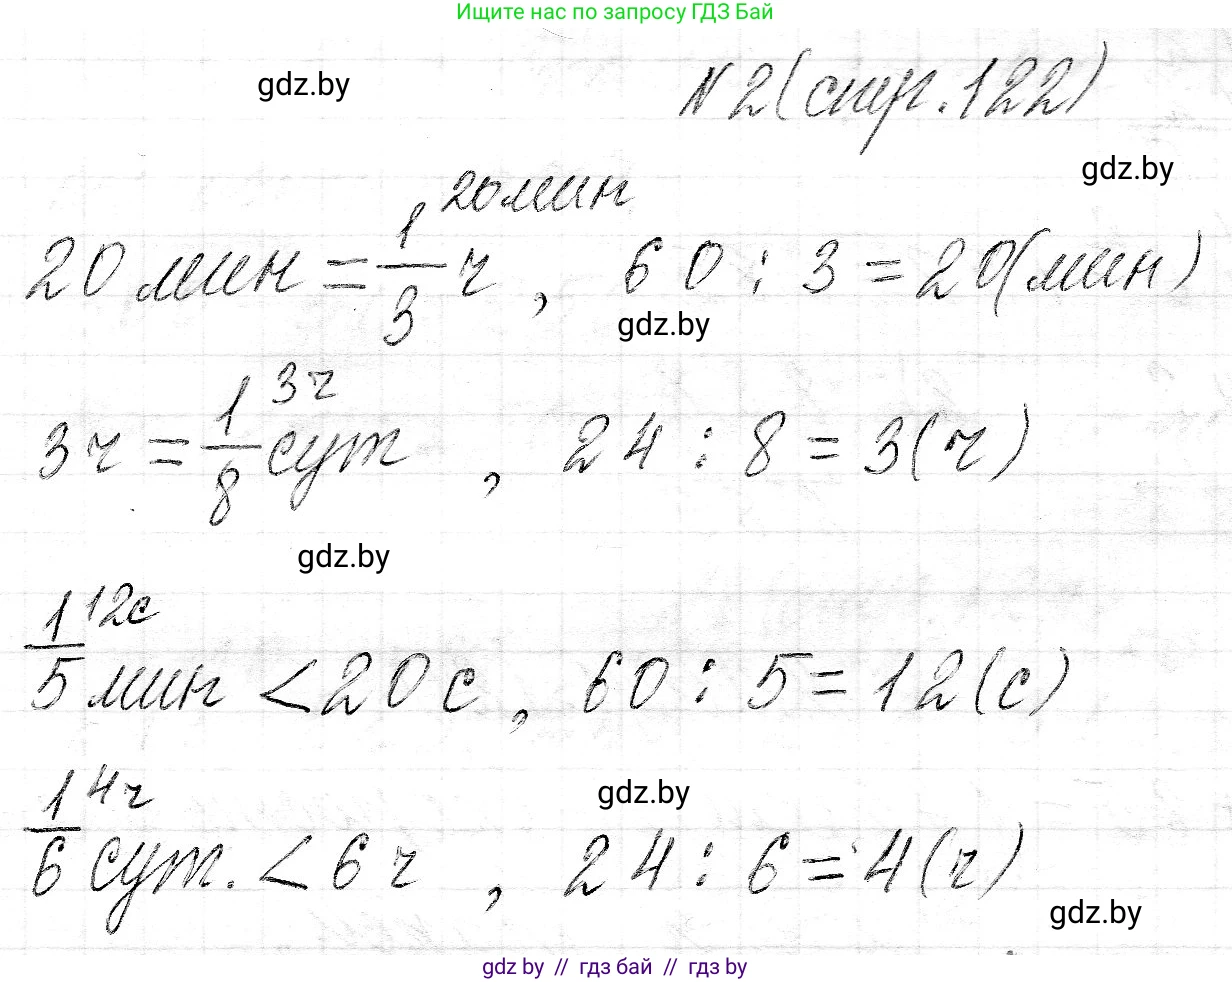 Ищите нас по запросу ГДЗ Бай
gdz.by
N 2 (стр. 122)
gdz.by
20 мин = 1/3 ч 20 мин , 60 : 3 = 20 (мин)
gdz.by
3 ч = 1/8 сут 3 ч , 24 : 8 = 3 (ч)
gdz.by
1/5 мин 12 с < 20 с , 60 : 5 = 12 (с)
gdz.by
1/6 сут. 4 ч < 6 ч , 24 : 6 = 4 (ч)
gdz.by
gdz by // гдз бай // гдз by